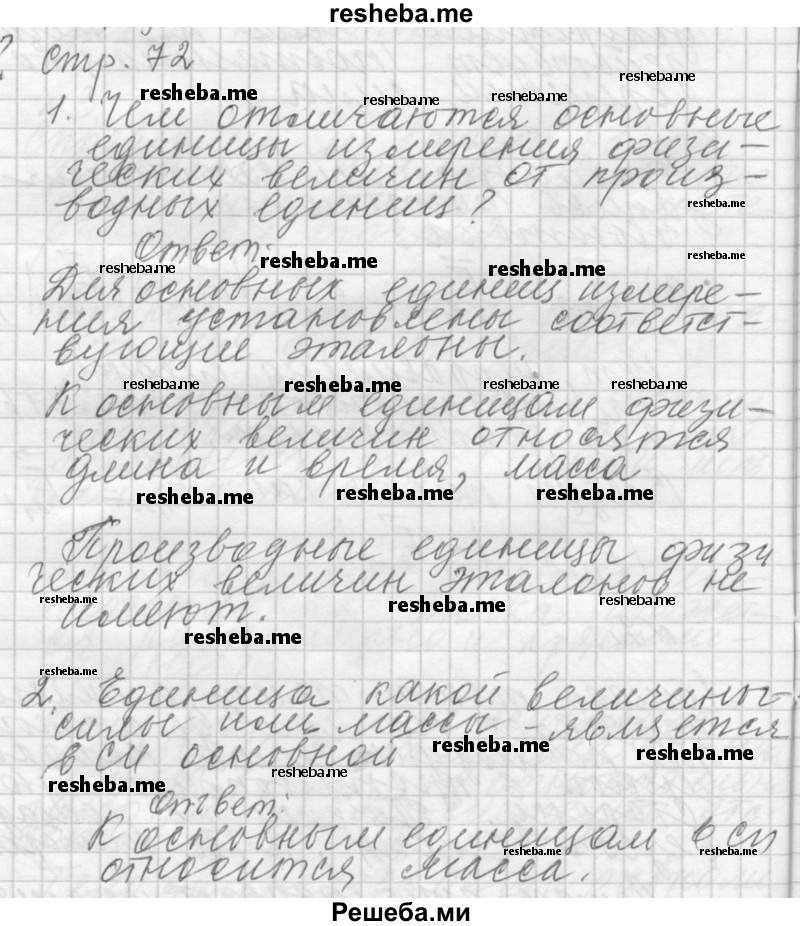 resheba.me
? стр. 72
resheba.me
resheba.me resheba.me resheba.me
1. Чем отличаются основные
единицы измерения физи-
ческих величин от произ-
resheba.me
водных единиц?
Ответ:
resheba.me resheba.me resheba.me resheba.me
Для основных единиц измере-
ния установлены соответст-
вующие эталоны.
resheba.me resheba.me resheba.me resheba.me
К основным единицам физи-
ческих величин относятся
длина и время, масса
resheba.me resheba.me resheba.me
Производные единицы физи
ческих величин эталонов не
resheba.me resheba.me resheba.me
имеют.
resheba.me
resheba.me
2. Единица какой величины-
силы или массы - является
в СИ основной
resheba.me resheba.me
resheba.me resheba.me
Ответ:
К основным единицам в СИ
resheba.me resheba.me
относится масса.
Решеба.ми